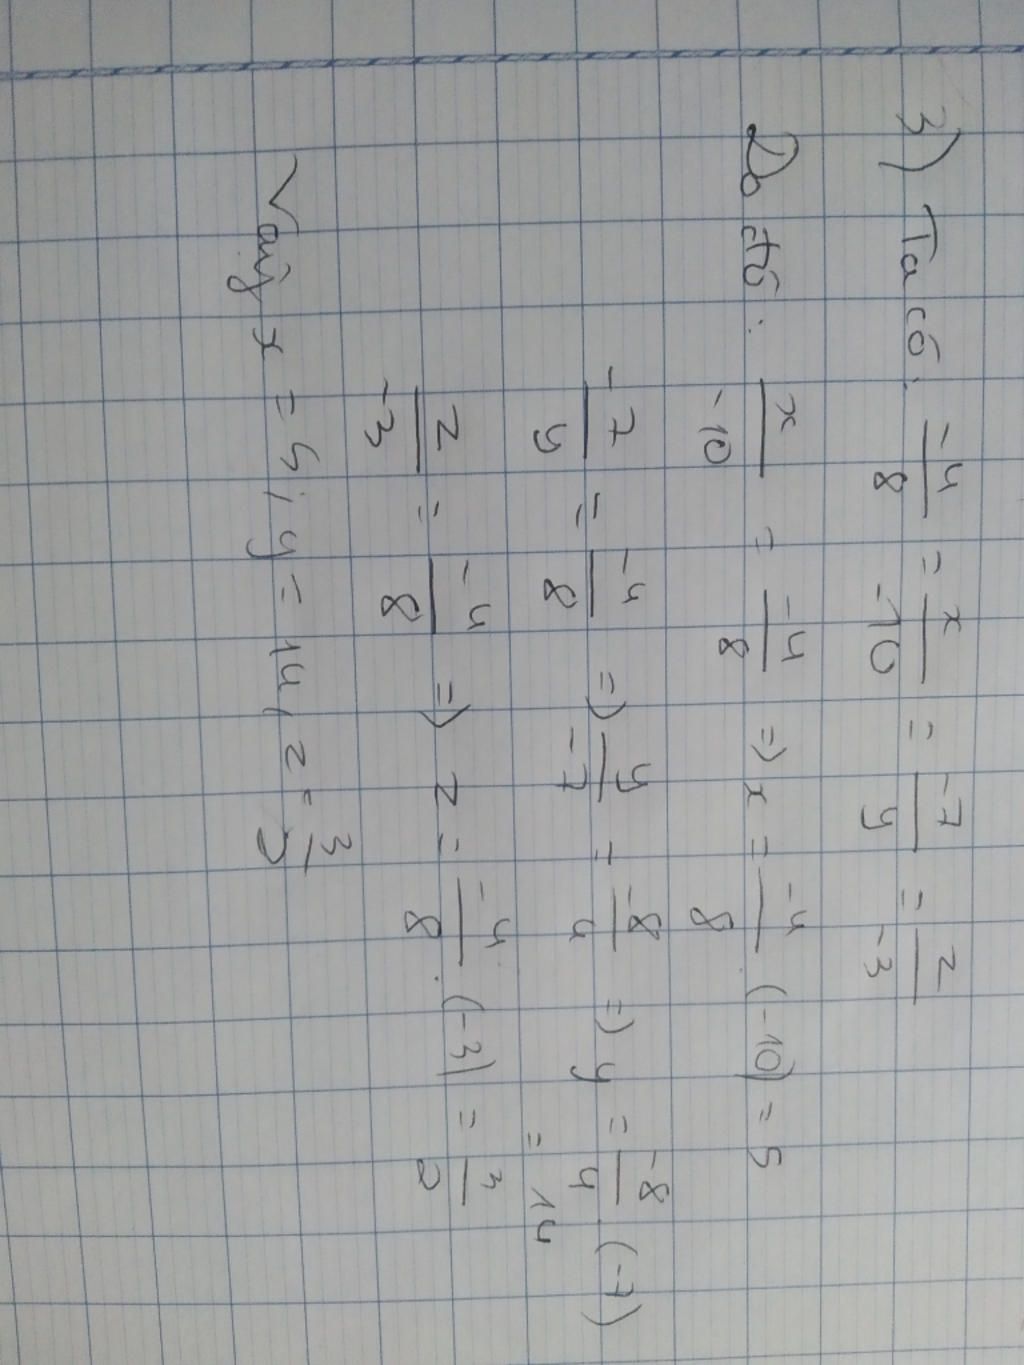 3) Ta có: -4/8 = x/-10 = -7/y = z/-3
Do đó: x/-10 = -4/8 => x = -4/8 (-10) = 5
-7/y = -4/8 => y/-7 = -8/4 => y = -8/4 (-7)
= 14
z/-3 = -4/8 => z = -4/8 . (-3) = 3/2
Vậy x = 5; y = 14, z = 3/2